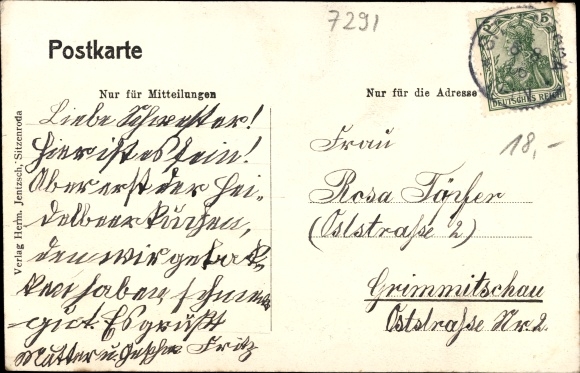 7291
Postkarte
Nur für Mitteilungen
Liebe Schwester!
Hier ist es fein!
Aber erst der Hei-
delbeerkuchen,
den wir gebak-
ken haben, schmeckt
gut. Es grüßt
Mutter u. Geschw. Fritz
Verlag Herm. Jentzsch, Sitzenroda
Nur für die Adresse
5
DEUTSCHES REICH
18,-
Frau
Rosa Töpfer
(Oststraße 2)
Grimmitschau
Oststraße Nr. 2.